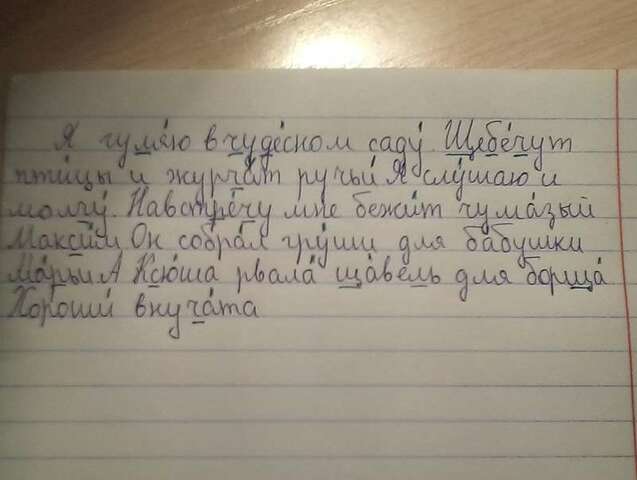 Я гуляю в чудесном саду Щебечут
птицы и журчат ручьи Я слушаю и
молчу. Навстречу мне бежит чумазый
Максим Он собрал груши для бабушки
Марьи А Ксюша рвала щавель для борща
Хороши внучата